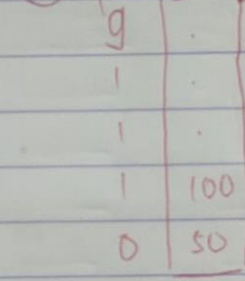 9 .
1 .
1 .
1 100
0 50